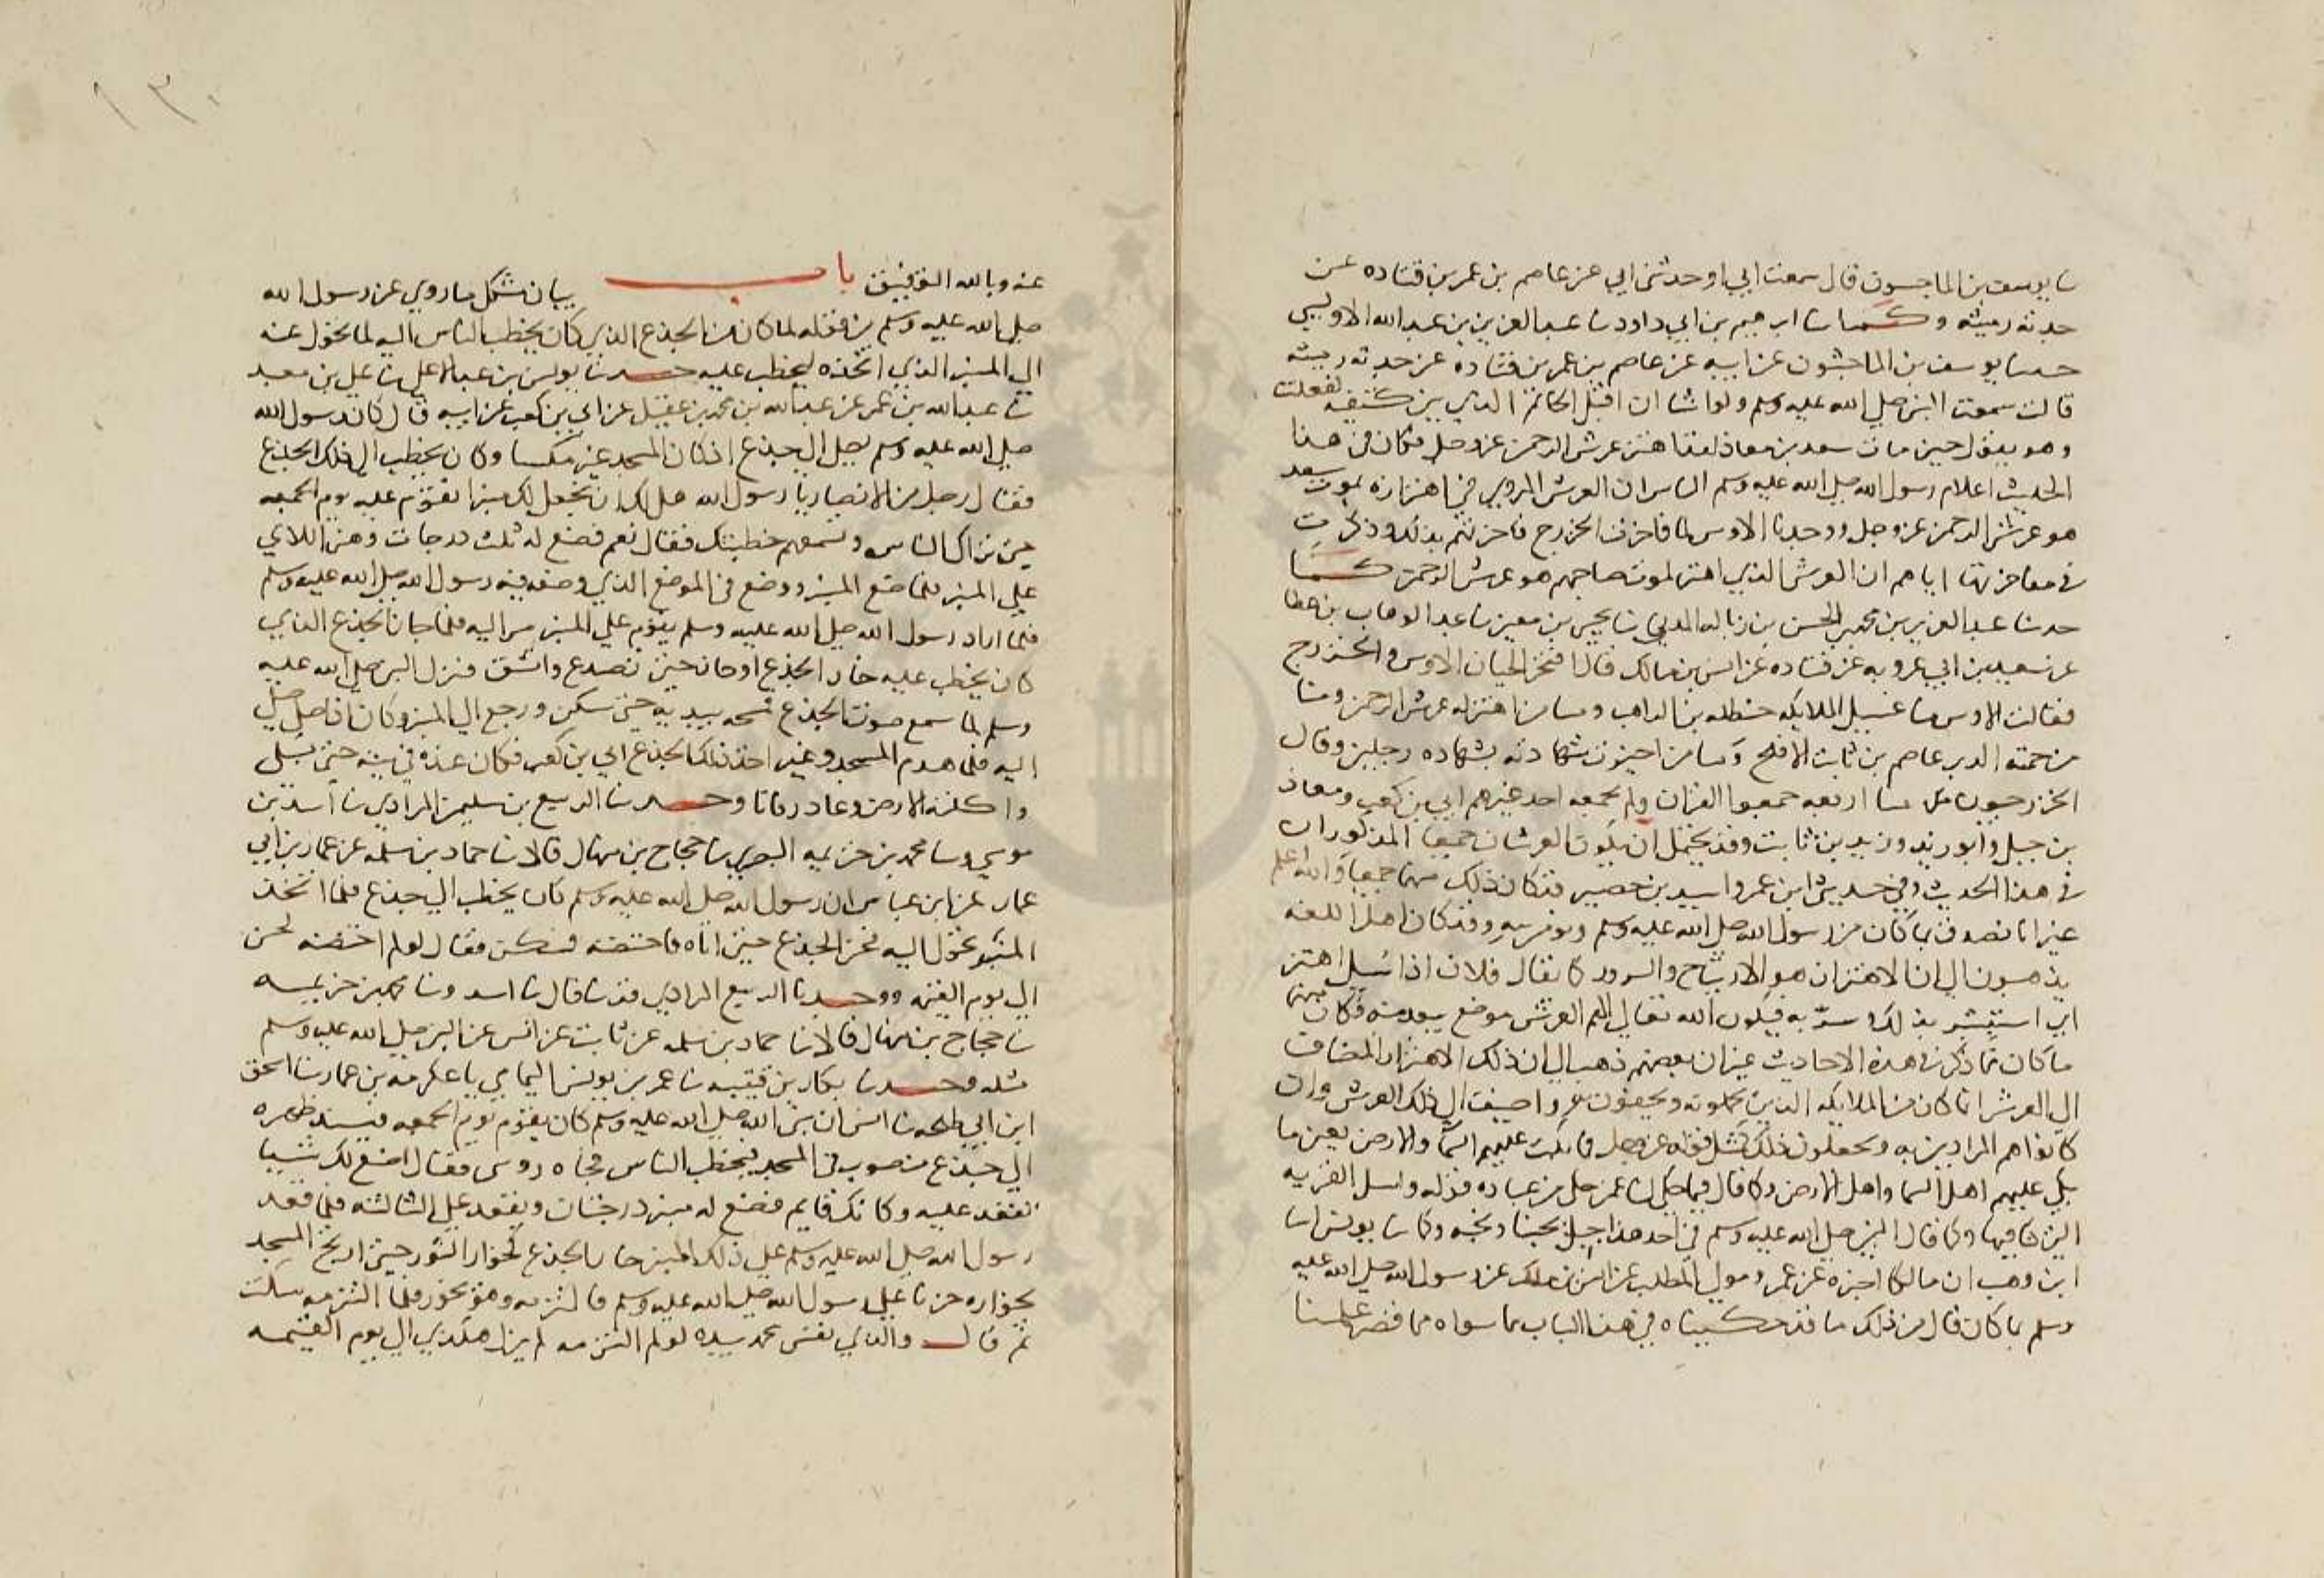 ثنا يوسف بن الماجشون قال سمعت ابي او حدثني ابي عن عاصم بن عمر بن قتاده عن
جدته رميثه وكما ثنا ابرهيم بن ابي داود ثنا عبد العزيز بن عبد الله الاويسي
حدثنا يوسف بن الماجشون عن ابيه عن عاصم بن عمر بن قتاده عن جدته رميثه
قالت سمعت النبي صلى الله عليه وسلم ولو اشا ان اقبل الخاتم الذي بين كتفيه لفعلت
وهو يقول حين مات سعد بن معاذ لقد اهتز عرش الرحمن عز وجل فكان في هذا
الحديث اعلام رسول الله صلى الله عليه وسلم الناس ان العرش المروي في اهتزازه لموت سعد
هو عرش الرحمن عز وجل ووجدنا الاوس لما فاخرت الخزرج فاخرتهم بذلك وذكرت
في مفاخرتها اياهم ان العرش الذي اهتز لموت صاحبهم هو عرش الرحمن كما
حدثنا عبد العزيز بن محمد بن الحسن بن زباله المديني ثنا يحيى بن معين ثنا عبد الوهاب بن عطا
عن سعيد بن ابي عروبه عن قتاده عن انس بن مالك قال افتخر الحيان الاوس والخزرج
فقالت الاوس منا غسيل الملايكه حنظله بن الراهب ومنا من اهتز له عرش الرحمن ومنا
من حمته الدبر عاصم بن ثابت الافلح ومنا من اجيزت شهادته بشهاده رجلين وقال
الخزرجيون منا اربعه جمعوا القران ولم يجمعه احد غيرهم ابي بن كعب ومعاذ
بن جبل وابو زيد وزيد بن ثابت وقد يحتمل ان يكون العرشان جميعا المذكوران
في هذا الحديث وفي حديثي ابن عمر واسيد بن حضير فكان ذلك منهما جميعا والله اعلم
غير انا نصدق بما كان من رسول الله صلى الله عليه وسلم ونومن به وقد كان اهل اللغه
يذهبون الى ان الاهتزاز هو الارتياح والسرور كما يقال فلان اذا سيل اهتز
اي استبشر بذلك وسر به فيكون الله تعالى الهم العرش موضع سعد منه فكان منهما
ما كان مما ذكر في هذه الاحاديث غير ان بعضهم ذهب الى ان ذلك الاهتزاز المضاف
الى العرش انما كان من الملايكه الذين يحملونه ويحفون به واضيف الى ذلك العرش وان
كانوا هم المرادين به ويجعلون ذلك كمثل قوله عز وجل فما بكت عليهم السما والارض يعني ما
بكى عليهم اهل السما واهل الارض وكما قال فيما حكى لنا عمن حكى من عباده قوله واسل القريه
التي كنا فيها وكما قال النبي صلى الله عليه وسلم في احد هذا جبل يحبنا ونحبه وكما ثنا يونس انا
ابن وهب ان مالكا اخبره عن عمرو مولى المطلب عن انس بن ملك عن رسول الله صلى الله عليه
وسلم بما كان قال من ذلك ما قد حكيناه في هذا الباب مما سواه مما قصر علمنا
١٣٠
عنه وبالله التوفيق باب بيان مشكل ما روي عن رسول الله
صلى الله عليه وسلم من قوله لما كان من الجذع الذي كان يخطب الناس اليه لما تحول عنه
الى المنبر الذي اتخذه ليخطب عليه حدثنا يونس بن عبد الاعلى ثنا علي بن معبد
ثنا عبيد الله بن عمر عن عبد الله بن محمد بن عقيل عن ابي بن كعب عن ابيه قال كان رسول الله
صلى الله عليه وسلم يصلى الى جذع اذ كان المسجد عريشا وكان يخطب الى ذلك الجذع
فقال رجل من الانصار يا رسول الله هل لك ان نجعل لك منبرا تقوم عليه يوم الجمعه
حتى تراك الناس وتسمعهم خطبتك فقال نعم فصنع له ثلث درجات وهن اللاتي
على المنبر فلما صنع المنبر ووضع في الموضع الذي وضعه فيه رسول الله صلى الله عليه وسلم
فلما اراد رسول الله صلى الله عليه وسلم يقوم على المنبر مر اليه فلما جاز الجذع الذي
كان يخطب عليه خار الجذع او حار حتى تصدع وانشق فنزل النبي صلى الله عليه
وسلم لما سمع صوت الجذع فمسحه بيديه حتى سكن ورجع الى المنبر وكان اذا صلى صلى
اليه فلما هدم المسجد وغير اخذ ذلك الجذع ابي بن كعب فكان عنده في بيته حتى بلي
واكلته الارض وعاد رفاتا وحدثنا الربيع بن سليمن المرادي ثنا اسد بن
موسى وثنا محمد بن خزيمه البصري ثنا حجاج بن منهال قالا ثنا حماد بن سلمه عن عمار بن ابي
عمار عن ابن عباس ان رسول الله صلى الله عليه وسلم كان يخطب الى جذع فلما اتخذ
المنبر تحول اليه فحن الجذع حتى اتاه فاحتضنه فسكن فقال لو لم احتضنه لحن
الى يوم القيمه ووحدثنا الربيع المرادي قد ثنا قال ثنا اسد وثنا محمد بن خزيمه
ثنا حجاج بن منهال قالا ثنا حماد بن سلمه عن ثابت عن انس عن النبي صلى الله عليه وسلم
مثله وحدثنا بكار بن قتيبه ثنا عمر بن يونس اليمامي ثنا عكرمه بن عمار ثنا اسحق
ابن ابي طلحه ثنا انس ان نبي الله صلى الله عليه وسلم كان يقوم يوم الجمعه فيسند ظهره
الى جذع منصوب في المسجد فيخطب الناس فجاه رومي فقال اصنع لك شييا
تقعد عليه وكانك قايم فصنع له منبر درجتان ويقعد على الثالثه فلما قعد
رسول الله صلى الله عليه وسلم على ذلك المنبر خار الجذع كخوار الثور حتى ارتج المسجد
بخواره حزنا على رسول الله صلى الله عليه وسلم فالتزمه وهو يخور فلما التزمه سكت
ثم قال والذي نفس محمد بيده لو لم التزمه لم يزل هكذي الى يوم القيمه